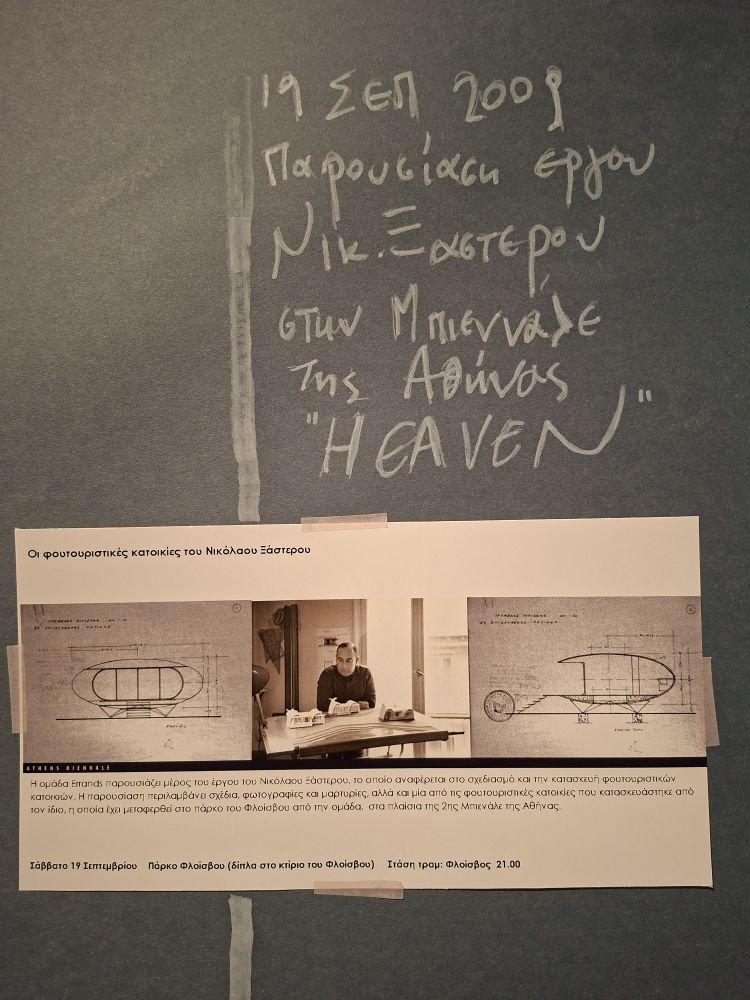 19 ΣΕΠ 2009
Παρουσίαση έργου
Νικ. Ξαστερου
στην Μπιεννάλε
της Αθήνας
"HEAVEN"
Οι φουτουριστικές κατοικίες του Νικόλαου Ξάστερου
ATHENS BIENNALE
Η ομάδα Errands παρουσιάζει μέρος του έργου του Νικόλαου Ξάστερου, το οποίο αναφέρεται στο σχεδιασμό και την κατασκευή φουτουριστικών
κατοικιών. Η παρουσίαση περιλαμβάνει σχέδια, φωτογραφίες και μαρτυρίες, αλλά και μία από τις φουτουριστικές κατοικίες που κατασκευάστηκε από
τον ίδιο, η οποία έχει μεταφερθεί στο πάρκο του Φλοίσβου από την ομάδα, στα πλαίσια της 2ης Μπιενάλε της Αθήνας.
Σάββατο 19 Σεπτεμβρίου Πάρκο Φλοίσβου (δίπλα στο κτίριο του Φλοίσβου) Στάση τραμ: Φλοίσβος 21.00